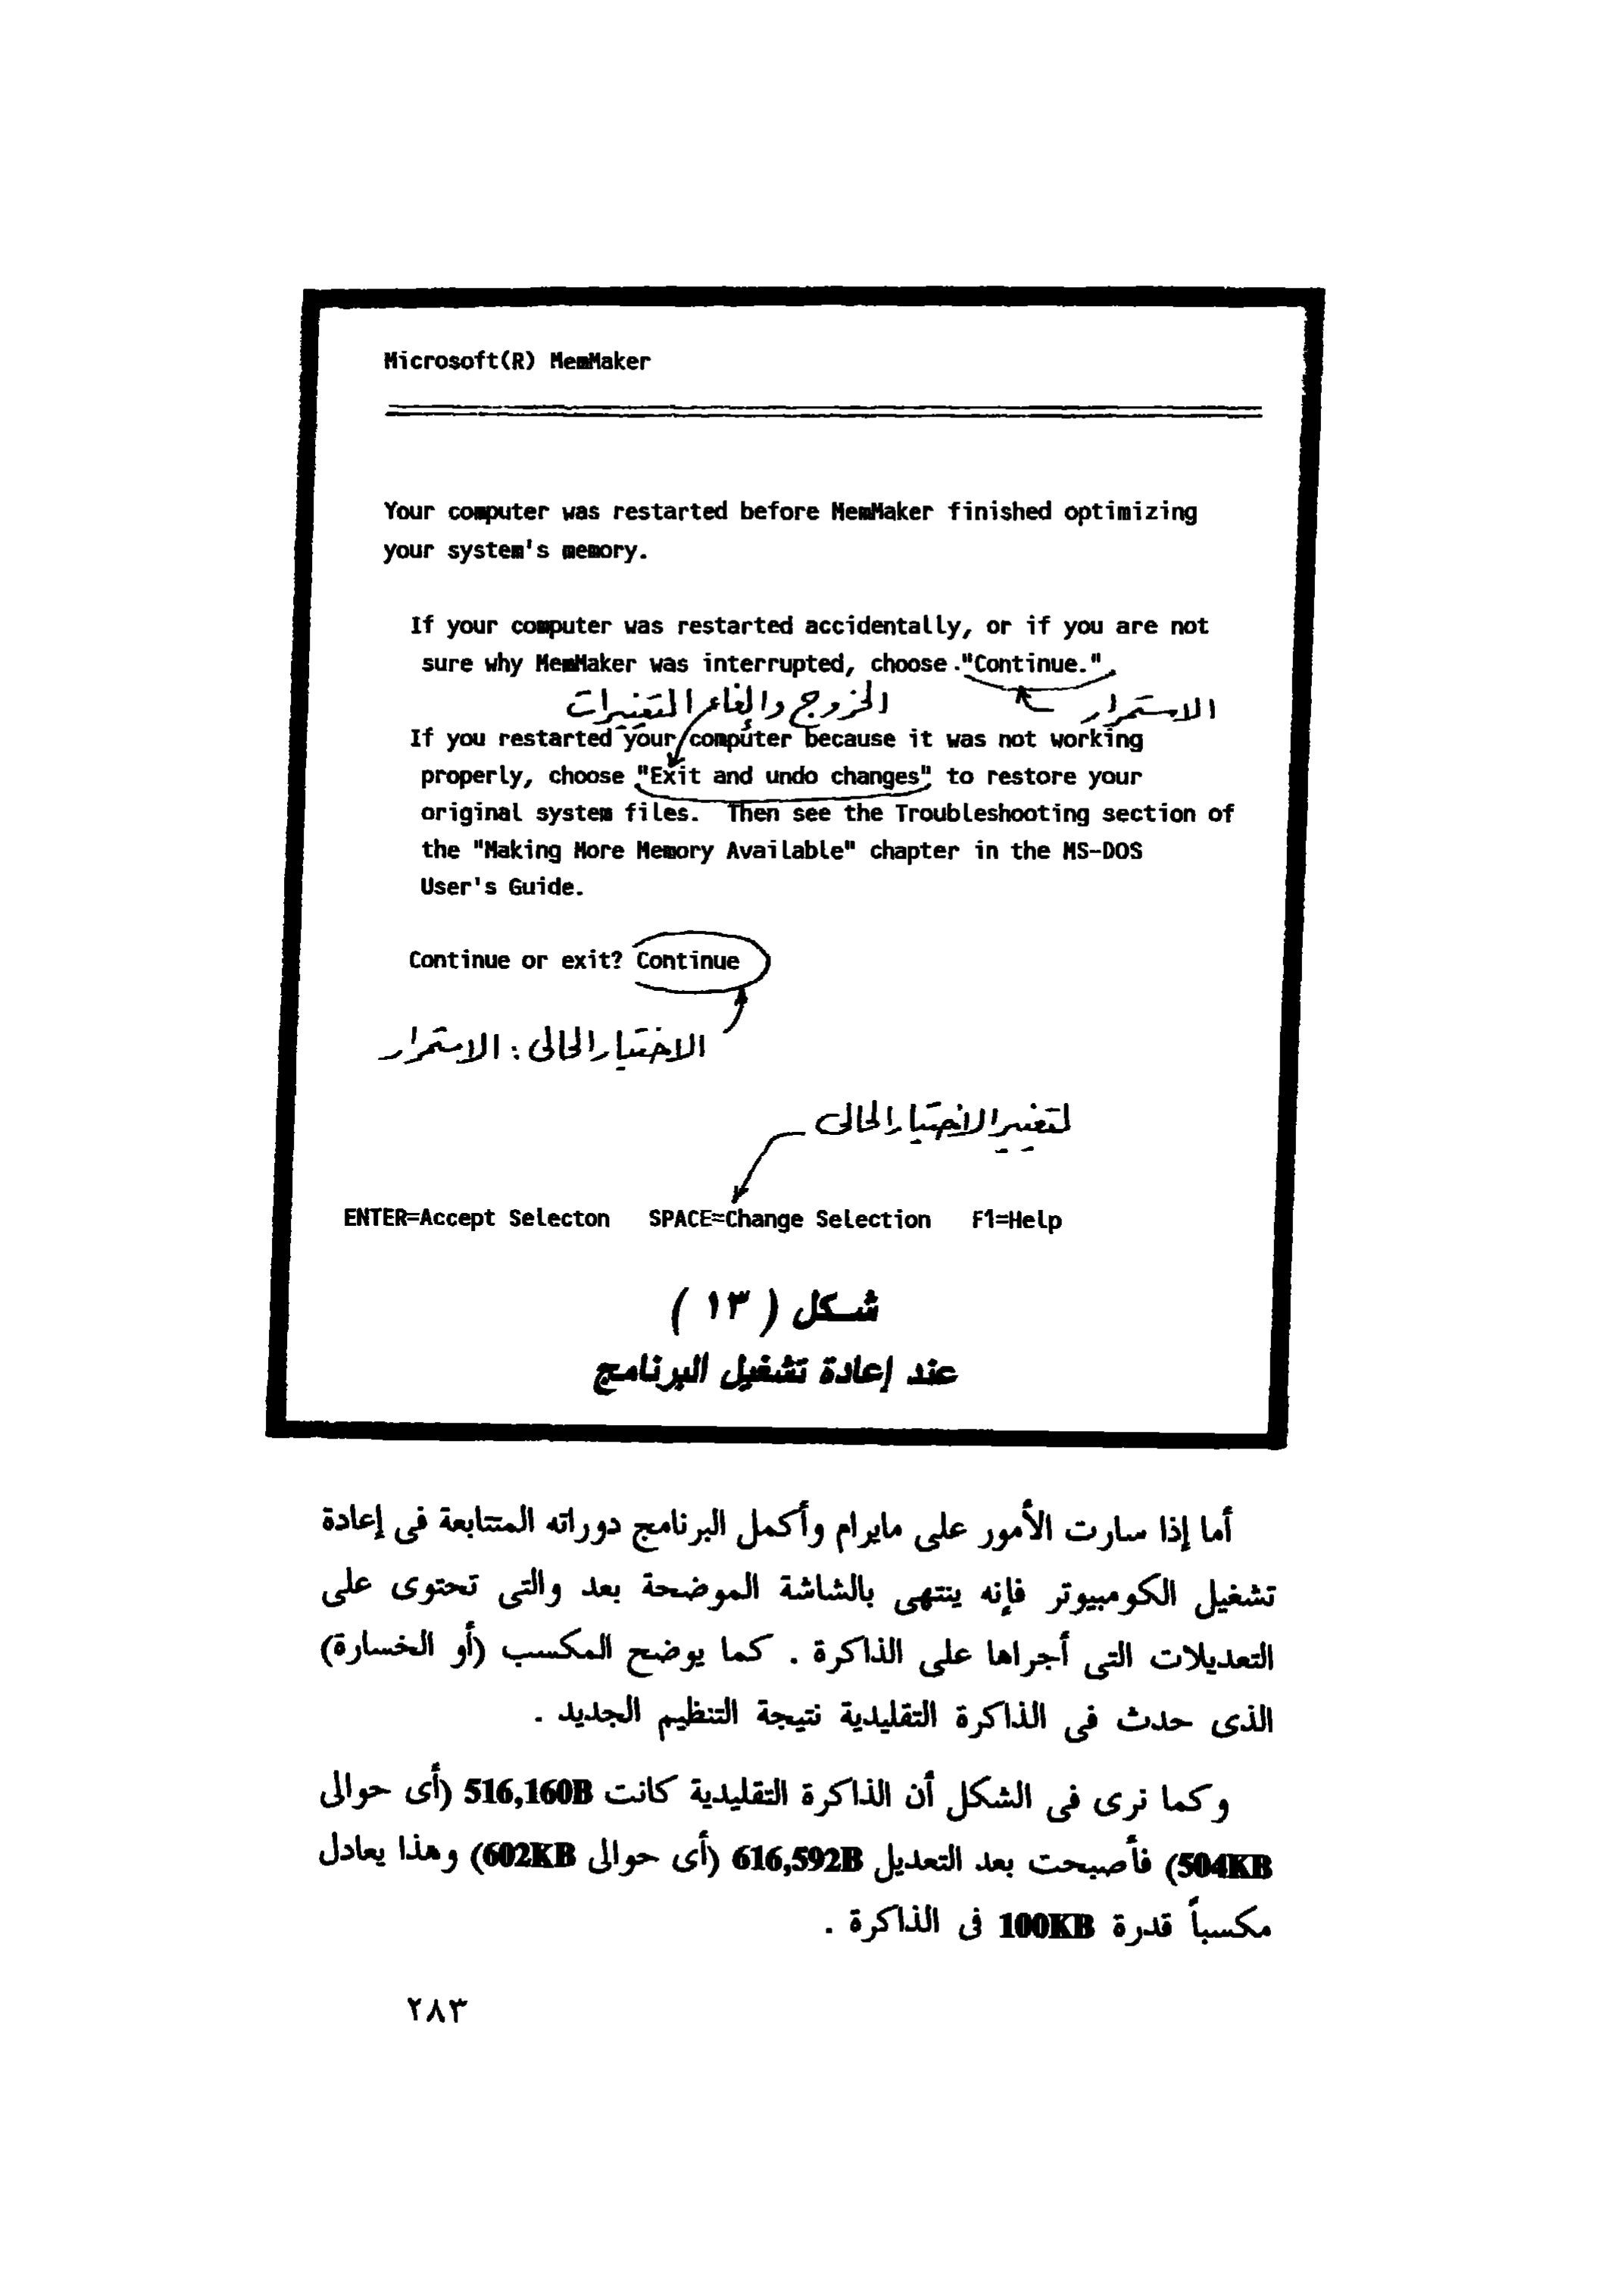 Microsoft(R) MemMaker
Your computer was restarted before MemMaker finished optimizing
your system's memory.
If your computer was restarted accidentally, or if you are not
sure why MemMaker was interrupted, choose "Continue."
الخروج وإلغاء التغييرات
الاستمرار
If you restarted your computer because it was not working
properly, choose "Exit and undo changes" to restore your
original system files. Then see the Troubleshooting section of
the "Making More Memory Available" chapter in the MS-DOS
User's Guide.
Continue or exit? Continue
الاختيار الحالى : الاستمرار
لتغيير الاختيار الحالى
ENTER=Accept Selecton SPACE=Change Selection F1=Help
شكل ( ١٣ )
عند إعادة تشغيل البرنامج
أما إذا سارت الأمور على مايرام وأكمل البرنامج دوراته المتتابعة فى إعادة
تشغيل الكومبيوتر فإنه ينتهى بالشاشة الموضحة بعد والتى تحتوى على
التعديلات التى أجراها على الذاكرة . كما يوضح المكسب (أو الخسارة)
الذى حدث فى الذاكرة التقليدية نتيجة التنظيم الجديد .
وكما نرى فى الشكل أن الذاكرة التقليدية كانت 516,160B (أى حوالى
504KB) فأصبحت بعد التعديل 616,592B (أى حوالى 602KB) وهذا يعادل
مكسباً قدرة 100KB فى الذاكرة .
٢٨٣